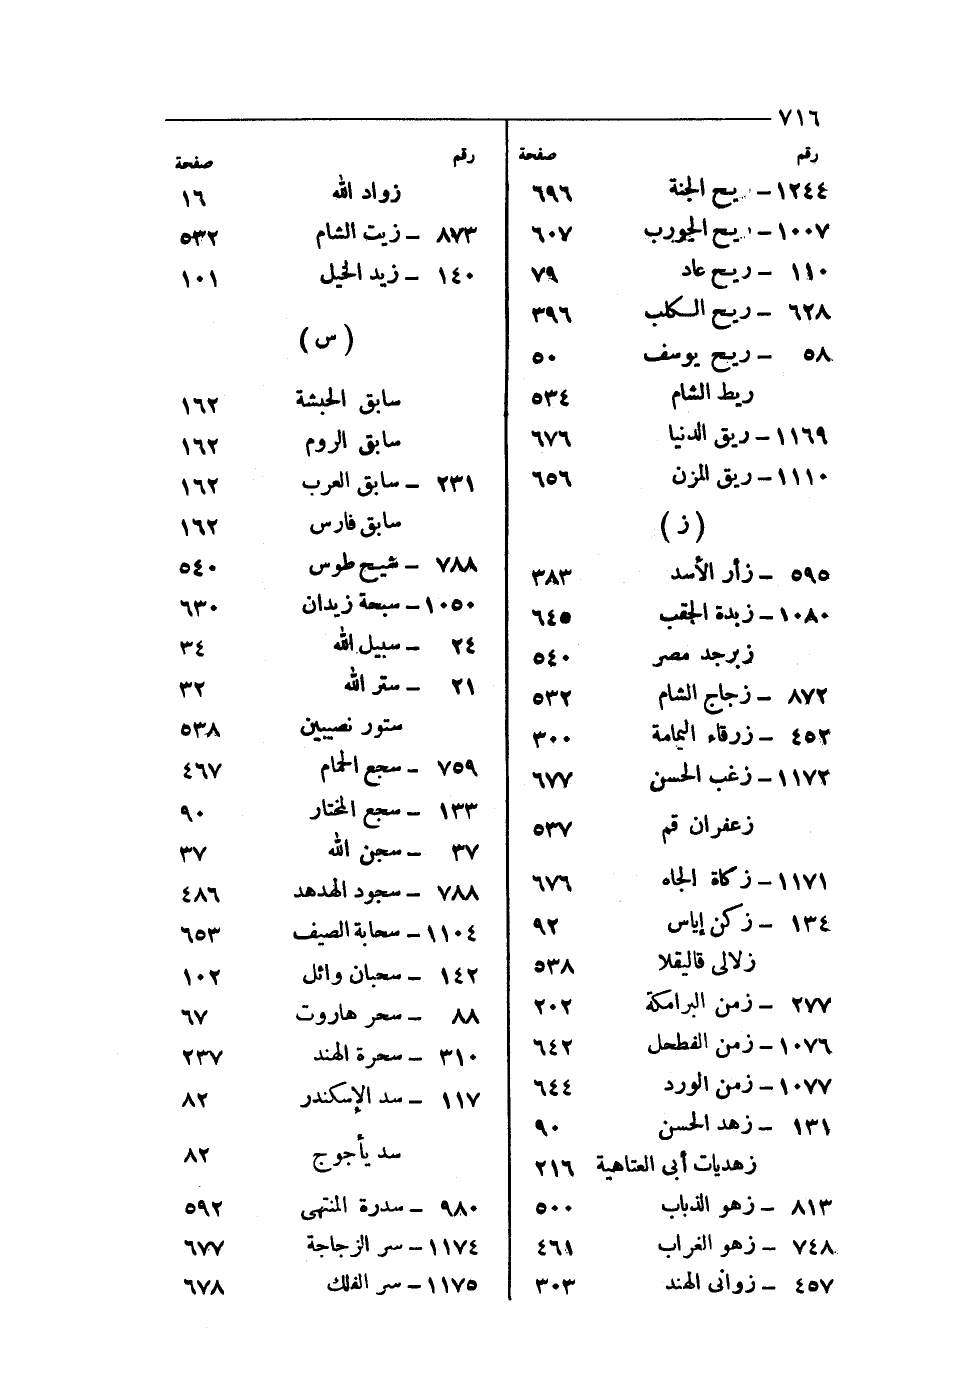 ٧١٦
رقم صفحة
١٢٤٤ – ريح الجنة ٦٩٦
١٠٠٧ – ريح الجورب ٦٠٧
١١٠ – ريح عاد ٧٩
٦٢٨ – ريح الكلب ٣٩٦
٥٨ – ريح يوسف ٥٠
ريط الشام ٥٣٤
١١٦٩ – ريق الدنيا ٦٧٦
١١١٠ – ريق المزن ٦٥٦
(ز)
٥٩٥ – زأر الأسد ٣٨٣
١٠٨٠ – زبدة الحقب ٦٤٥
زبرجد مصر ٥٤٠
٨٧٢ – زجاج الشام ٥٣٢
٤٥٢ – زرقاء اليمامة ٣٠٠
١١٧٢ – زغب الحسن ٦٧٧
زعفران قم ٥٣٧
١١٧١ – زكاة الجاه ٦٧٦
١٣٤ – زكن إياس ٩٢
زلالى قاليقلا ٥٣٨
٢٧٧ – زمن البرامكة ٢٠٢
١٠٧٦ – زمن الفطحل ٦٤٢
١٠٧٧ – زمن الورد ٦٤٤
١٣١ – زهد الحسن ٩٠
زهديات أبى العتاهية ٢١٦
٨١٣ – زهو الذباب ٥٠٠
٧٤٨ – زهو الغراب ٤٦١
٤٥٧ – زوانى الهند ٣٠٣
رقم صفحة
زواد الله ١٦
٨٧٣ – زيت الشام ٥٣٢
١٤٠ – زيد الخيل ١٠١
(س)
سابق الحبشة ١٦٢
سابق الروم ١٦٢
٢٣١ – سابق العرب ١٦٢
سابق فارس ١٦٢
٧٨٨ – شيح طوس ٥٤٠
١٠٥٠ – سبحة زيدان ٦٣٠
٢٤ – سبيل الله ٣٤
٢١ – ستر الله ٣٢
ستور نصيبين ٥٣٨
٧٥٩ – سجع الحمام ٤٦٧
١٣٣ – سجع المختار ٩٠
٣٧ – سجن الله ٣٧
٧٨٨ – سجود الهدهد ٤٨٦
١١٠٤ – سحابة الصيف ٦٥٣
١٤٢ – سحبان وائل ١٠٢
٨٨ – سحر هاروت ٦٧
٣١٠ – سحرة الهند ٢٣٧
١١٧ – سد الإسكندر ٨٢
سد يأجوج ٨٢
٩٨٠ – سدرة المنتهى ٥٩٢
١١٧٤ – سر الزجاجة ٦٧٧
١١٧٥ – سر الفلك ٦٧٨